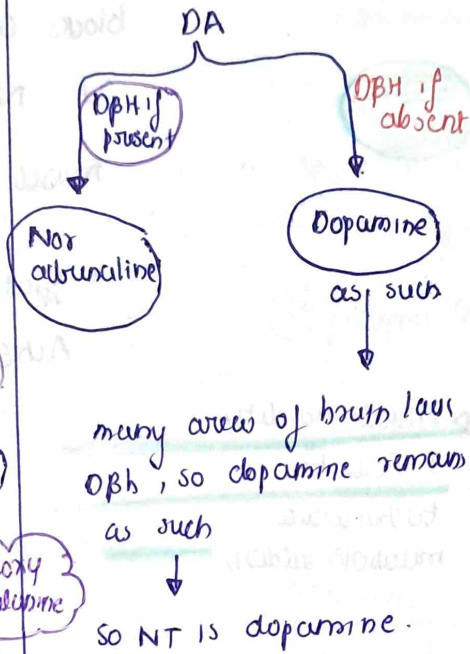 DA
DβH if
present
DβH if
absent
Nor
adrenaline
Dopamine
as such
many areas of brain lack
Dβh, so dopamine remains
as such
oxy
so NT is dopamine.